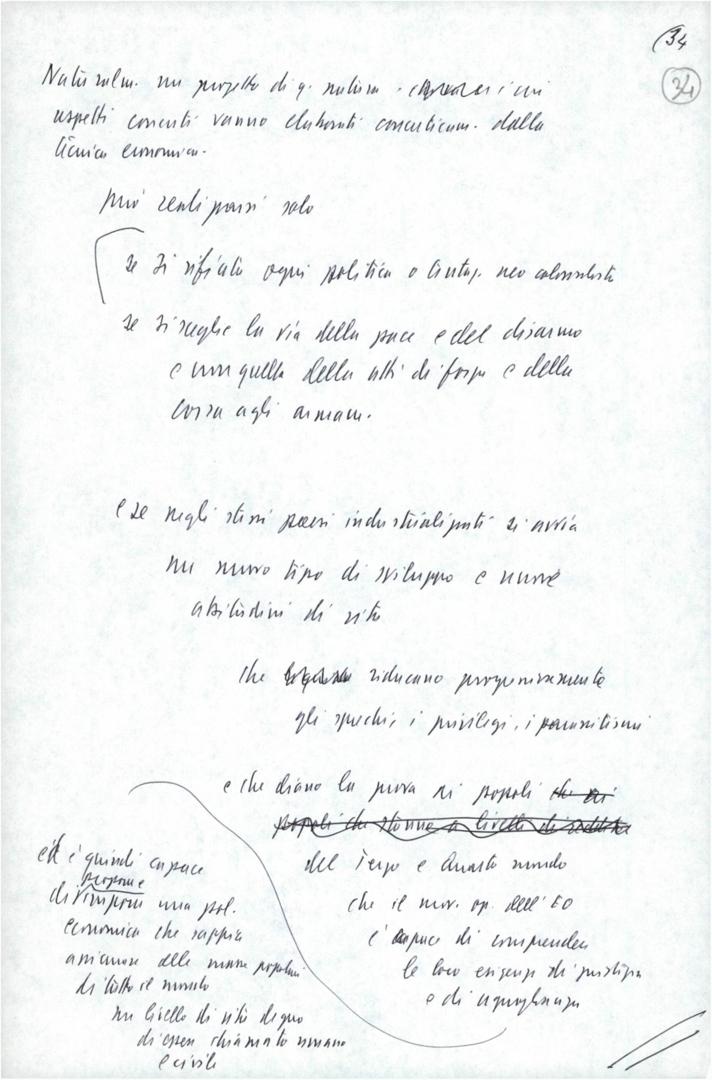 34
34
Naturalm. un progetto di q. natura i cui
aspetti concreti vanno elaborati concreticam. dalla
tecnica economica.
può realizzarsi solo
se si rifiuta ogni politica o tentaz. neo colonialista
se si sceglie la via della pace e del disarmo
e non quella della atti di forza e della
corsa agli armam.
e se negli stessi paesi industrializzati si avvia
un nuovo tipo di sviluppo e nuove
abitudini di vita
che riducano progressivamente
gli sprechi, i privilegi, i parassitismi
e che diano la prova ai popoli che ai
popoli che stanno a livelli di
del Terzo e Quarto mondo
che il mov. op. dell'EO
è capace di comprendere
le loro esigenze di giustizia
e di uguaglianza
ed è quindi capace
propone
di imporre una pol.
economica che sappia
assicurare alle masse popolari
di tutto il mondo
un livello di vita degno
di esser chiamato umano
e civile